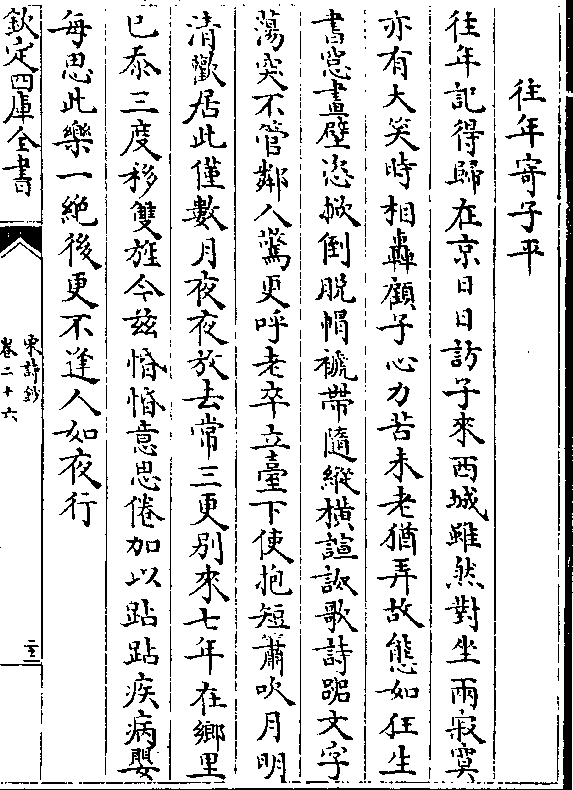 往年寄子平
往年記得歸在京日日訪子來西城雖然對坐兩寂寞
亦有大笑時相轟顧子心力苦未老猶弄故態如狂生
書窓畫壁恣掀倒脱帽褫帶隨縱橫諠詉歌詩䠞文字
蕩突不管鄰人驚更呼老卒立臺下使抱短簫吹月明
清歡居此僅數月夜夜放去常三更别來七年在鄉里
已忝三度移雙旌今兹惛惛意思倦加以跕跕疾病嬰
每思此樂一絶後更不逢人如夜行
欽定四庫全書
宋詩鈔
卷二十六